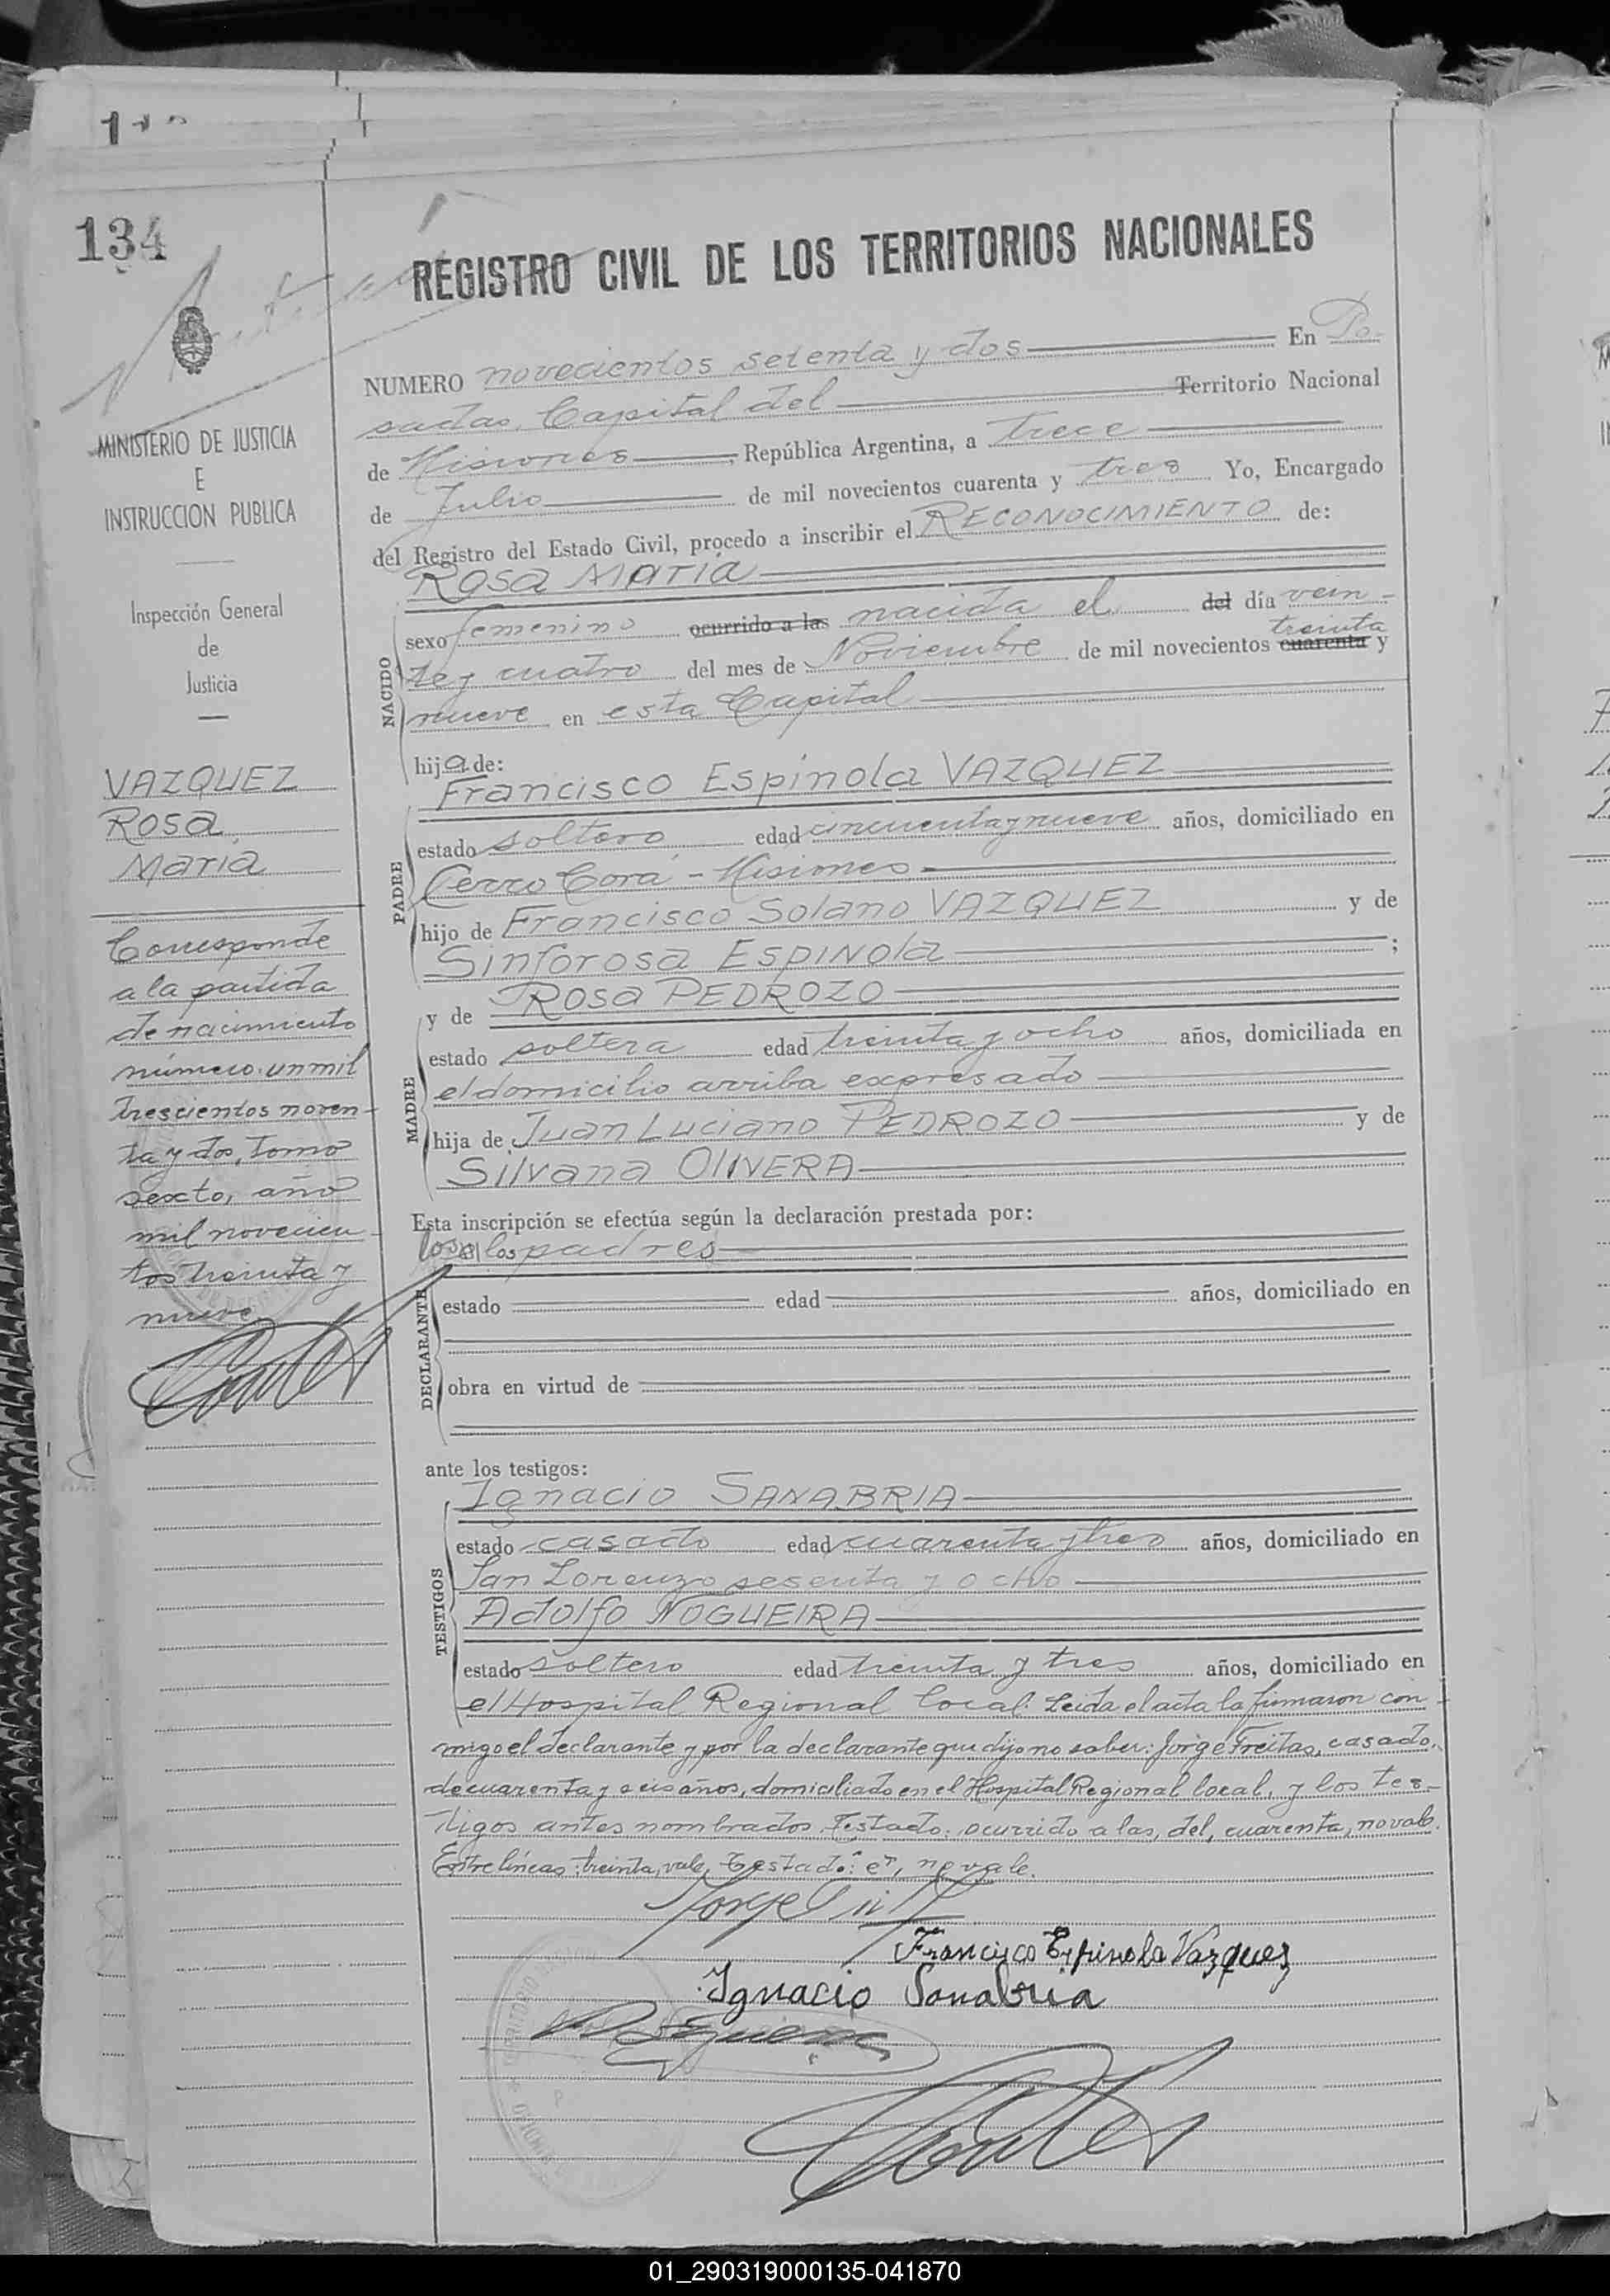 134
REGISTRO CIVIL DE LOS TERRITORIOS NACIONALES
NUMERO novecientos setenta y dos En Po-
sadas, Capital del Territorio Nacional
de Misiones, República Argentina, a trece
de Julio de mil novecientos cuarenta y tres Yo, Encargado
del Registro del Estado Civil, procedo a inscribir el RECONOCIMIENTO de:
Rosa María
NACIDO
sexo femenino ocurrido a las nacida el del día vein-
treinta
te y cuatro del mes de Noviembre de mil novecientos cuarenta y
nueve en esta Capital
hija de:
Francisco Espínola VAZQUEZ
PADRE
estado soltero edad cincuenta y nueve años, domiciliado en
Cerro Corá - Misiones
hijo de Francisco Solano VAZQUEZ y de
Sinforosa ESPINOla;
y de Rosa PEDROZO
MADRE
estado soltera edad treinta y ocho años, domiciliada en
el domicilio arriba expresado
hija de Juan Luciano PEDROZO y de
Silvana OLIVERA
Esta inscripción se efectúa según la declaración prestada por:
los padres
DECLARANTE
estado edad años, domiciliado en
obra en virtud de
ante los testigos:
Ignacio SANABRIA
TESTIGOS
estado casado edad cuarenta y tres años, domiciliado en
San Lorenzo sesenta y ocho
Adolfo NOGUEIRA
estado soltero edad treinta y tres años, domiciliado en
el Hospital Regional local. Leida el acta la firmaron con-
migo el declarante y por la declarante que dijo no saber: Jorge Freitas, casado,
de cuarenta y seis años, domiciliado en el Hospital Regional local, y los tes-
tigos antes nombrados. Testado: ocurrido a las, del, cuarenta, no vale.
Entre líneas: treinta, vale. Testado: er, no vale.
Francisco Espinola Vazquez
Ignacio Sanabria
MINISTERIO DE JUSTICIA
E
INSTRUCCION PUBLICA
Inspección General
de
Justicia
VAZQUEZ
Rosa
María
Corresponde
a la partida
de nacimiento
número un mil
trescientos noven-
ta y dos, tomo
sexto, año
mil novecien-
tos treinta y
nueve
01_290319000135-041870